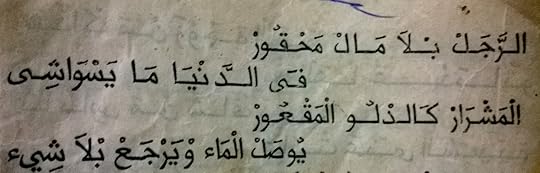 الرَّجَلْ بْلاَ مَالْ مَحْقُورْ
فَى الدَّنْيَا مَا يَسْوَاشِى
اَلْمَشْرَارْ كَالدْلُو الْمَقْعُورْ
يُوصَلْ الْمَاء وْيَرْجَعْ بْلاَ شِيء